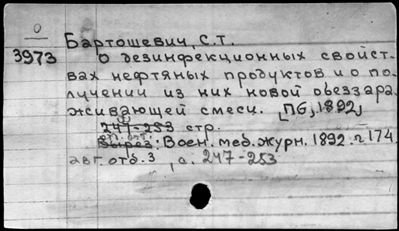 0
Бартошевич, С.Т.
3973 О дезинфекционных свойст-
вах нефтяных продуктов и о по-
лучении из них новой обеззара-
живающей смеси. [Пб, 1892]
247-253 стр.
отд. отт.
Вырез: Воен. мед. журн. 1892. г. 174.
авг. отд. 3, с. 247-253